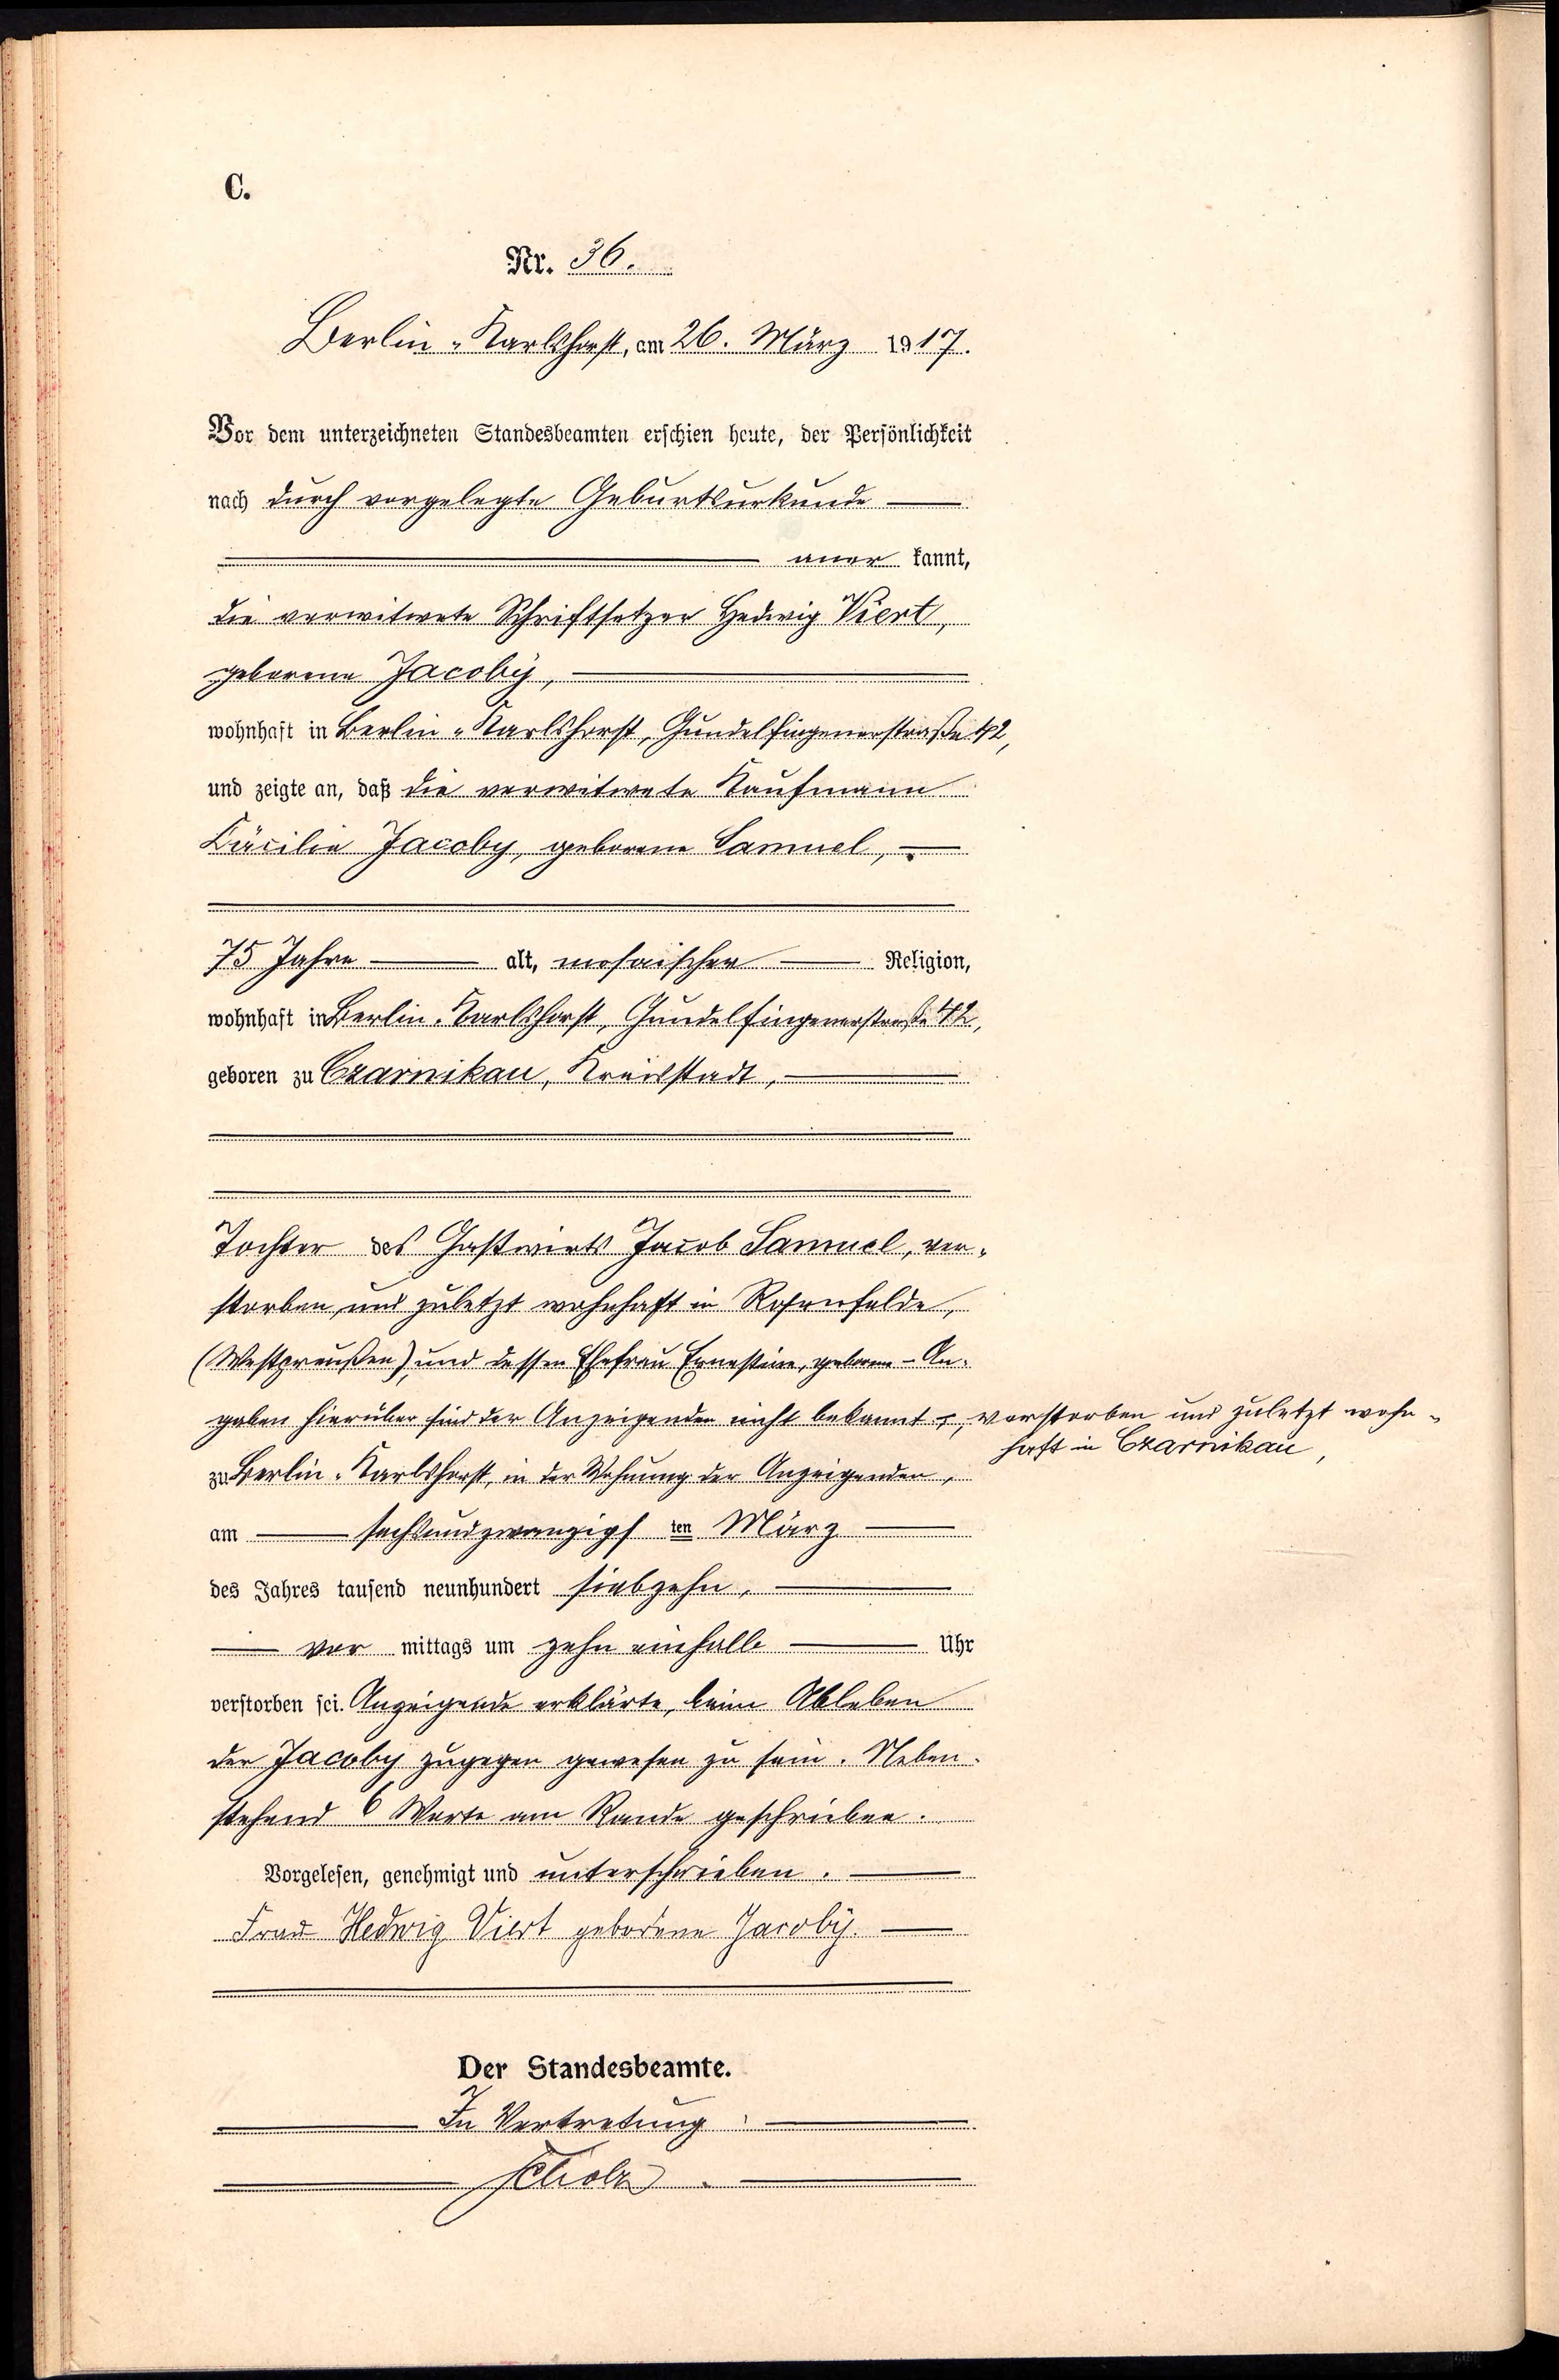 C.
Nr. 36.
Berlin-Karlshorst, am 26. März 1917.
Vor dem unterzeichneten Standesbeamten erschien heute, der Persönlichkeit
nach durch vorgelegte Geburtsurkunde
anerkannt,
die verwitwete Schriftsetzer Hedwig Viert,
geborene Jacoby,
wohnhaft in Berlin-Karlshorst, Gundelfingenerstraße 42,
und zeigte an, daß die verwitwete Kaufmann
Cäcilie Jacoby, geborene Samuel,
75 Jahre alt, mosaischer Religion,
wohnhaft in Berlin-Karlshorst, Gundelfingenerstraße 42,
geboren zu Czarnikau, Kreisstadt,
Tochter des Gastwirts Jacob Samuel, ver-
storben und zuletzt wohnhaft in Rosenfelde,
(Westpreußen), und dessen Ehefrau Ernestine, geborene - An-
gaben hierüber sind der Anzeigenden nicht bekannt -, verstorben und zuletzt wohn-
haft in Czarnikau,
zu Berlin-Karlshorst, in der Wohnung der Anzeigenden,
am sechsundzwanzigsten März
des Jahres tausend neunhundert siebzehn,
vormittags um zehn einhalb Uhr
verstorben sei. Anzeigende erklärte, beim Ableben
der Jacoby zugegen gewesen zu sein. Neben-
stehend 6 Worte am Rande geschrieben.
Vorgelesen, genehmigt und unterschrieben.
Frau Hedwig Viert geborene Jacoby.
Der Standesbeamte.
In Vertretung:
Scholz.